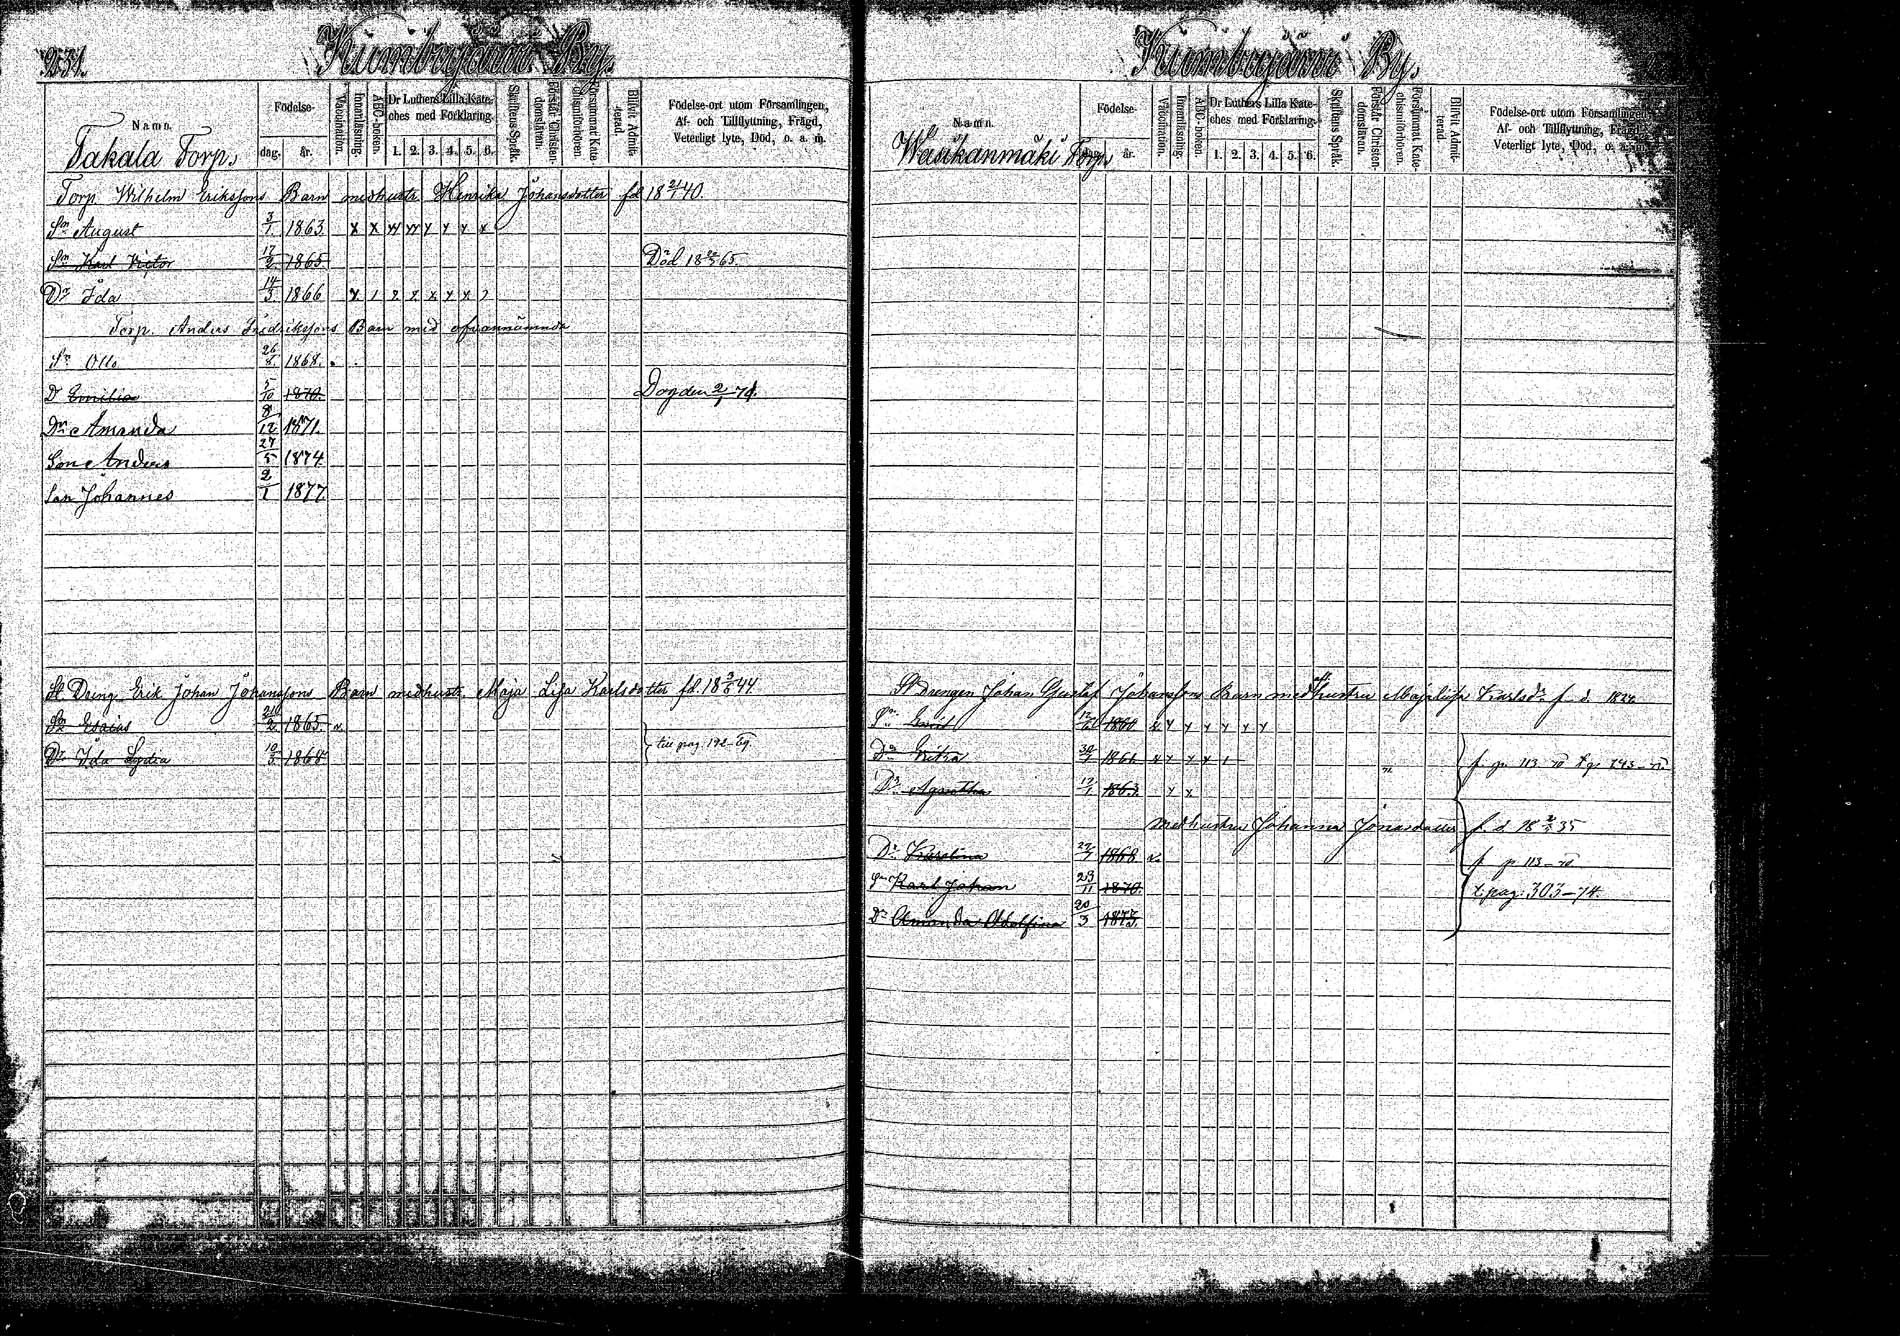 231.
Kuombajärvi By.
Namn.
Födelse-
dag. år.
Vaccination.
Innanläsning.
ABC-boken.
Dr Luthers Lilla Kate-
ches med Förklaring.
1. 2. 3. 4. 5. 6.
Skriftens Språk.
Förstår Christen-
domsläran.
Försummat Kate-
chismiförhören.
Blifvit Admit-
terad.
Födelse-ort utom Församlingen,
Af- och Tillflyttning, Frägd,
Veterligt lyte, Död, o. a. m.
Takala Torp.
Torp Wilhelm Erikssons Barn med hustr. Henrika Johansdotter fd 18 21/1 40.
Sn August 3/1 1863 x x xx xx y y y x
Sn Karl Victor 17/2 1865 Död 18 65.
Dr Ida 14/3 1866
Torp. Anders Fredrikssons Barn med ofvannämnda
Sn Otto 26/8 1868.
D Emilia 5/10 1870. Dog den 2/1 71.
Dr Amanda 8/12 1871.
Son Anders 27/5 1874
Son Johannes 2/1 1877
St Dreng Erik Johan Johanssons Barn med hustr. Maja Lisa Karlsdotter fd. 18 44.
Sn Esaias 2 1865
Dr Ida Lydia 10/3 1868 till pag. 192
Kuombajärvi By.
Namn.
Födelse-
dag. år.
Vaccination.
Innanläsning.
ABC-boken.
Dr Luthers Lilla Kate-
ches med Förklaring.
1. 2. 3. 4. 5. 6.
Skriftens Språk.
Förstår Christen-
domsläran.
Försummat Kate-
chismiförhören.
Blifvit Admit-
terad.
Födelse-ort utom Församlingen,
Af- och Tillflyttning, Frägd,
Veterligt lyte, Död, o. a. m.
Wasikanmäki Torp.
St Drengen Johan Gustaf Johanssons Barn med hustru Majalisa Karlsdr f. d. 1826
Sn 1860
Dr 30 1861 f. p. 113
Dr Agatha 17/1 1863
med hustru Johanna Jonasdotter f. d. 18 35
Dr Karolina 27 1868 f. p. 113
Sn Karl Johan 23/11 1870. t. pag: 303–74.
Dr Amanda Adolfina 20/3 1873.